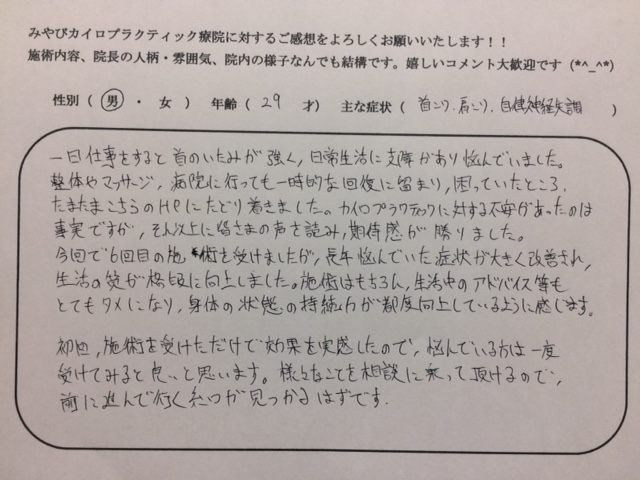 みやびカイロプラクティック療院に対するご感想をよろしくお願いいたします！！
施術内容、院長の人柄・雰囲気、院内の様子なんでも結構です。嬉しいコメント大歓迎です（*^_^*）
性別（ 男 ・ 女 ） 年齢（ 29 才） 主な症状（ 首こり、肩こり、自律神経失調 ）
一日仕事をすると首のいたみが強く、日常生活に支障があり悩んでいました。
整体やマッサージ、病院に行っても一時的な回復に留まり、困っていたところ、
たまたまこちらのHPにたどり着きました。カイロプラクティックに対する不安があったのは
事実ですが、それ以上に皆さまの声を読み、期待感が勝りました。
今回で6回目の施術を受けましたが、長年悩んでいた症状が大きく改善され、
生活の質が格段に向上しました。施術はもちろん、生活中のアドバイス等も
とてもタメになり、身体の状態の持続力が都度向上しているように感じます。
初回、施術を受けただけで効果を実感したので、悩んでいる方は一度
受けてみると良いと思います。様々なことを相談に乗って頂けるので、
前に進んで行く糸口が見つかるはずです。